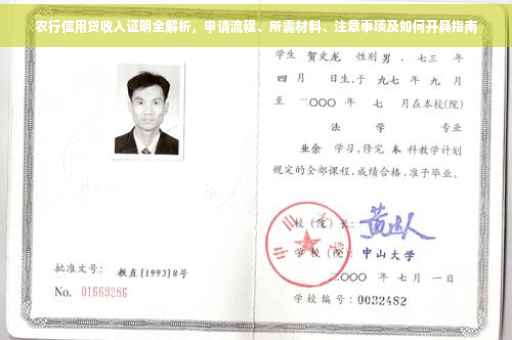 农行信用贷收入证明全解析，申请流程、所需材料、注意事项及如何开具指南
学生 贺文龙 性别 男 . 七三 年
四 月 日生,于 九七 年 九 月
至 二〇〇〇 年 七 月在本校(院)
法 学 专业
业余 学习,修完 本 科教学计划
规定的全部课程,成绩合格,准予毕业。
校（院）长：
学校（院）：中山大学
二〇〇〇 年 七 月 一 日
学校编号：0032482
批准文号： 教直[1993]8号
No. 01669286